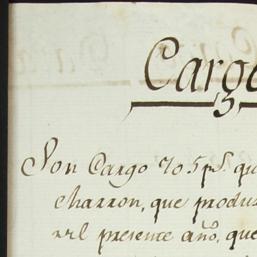 Cargo
Son Cargo 705 p.s que
charron, que produ
el presente año, que